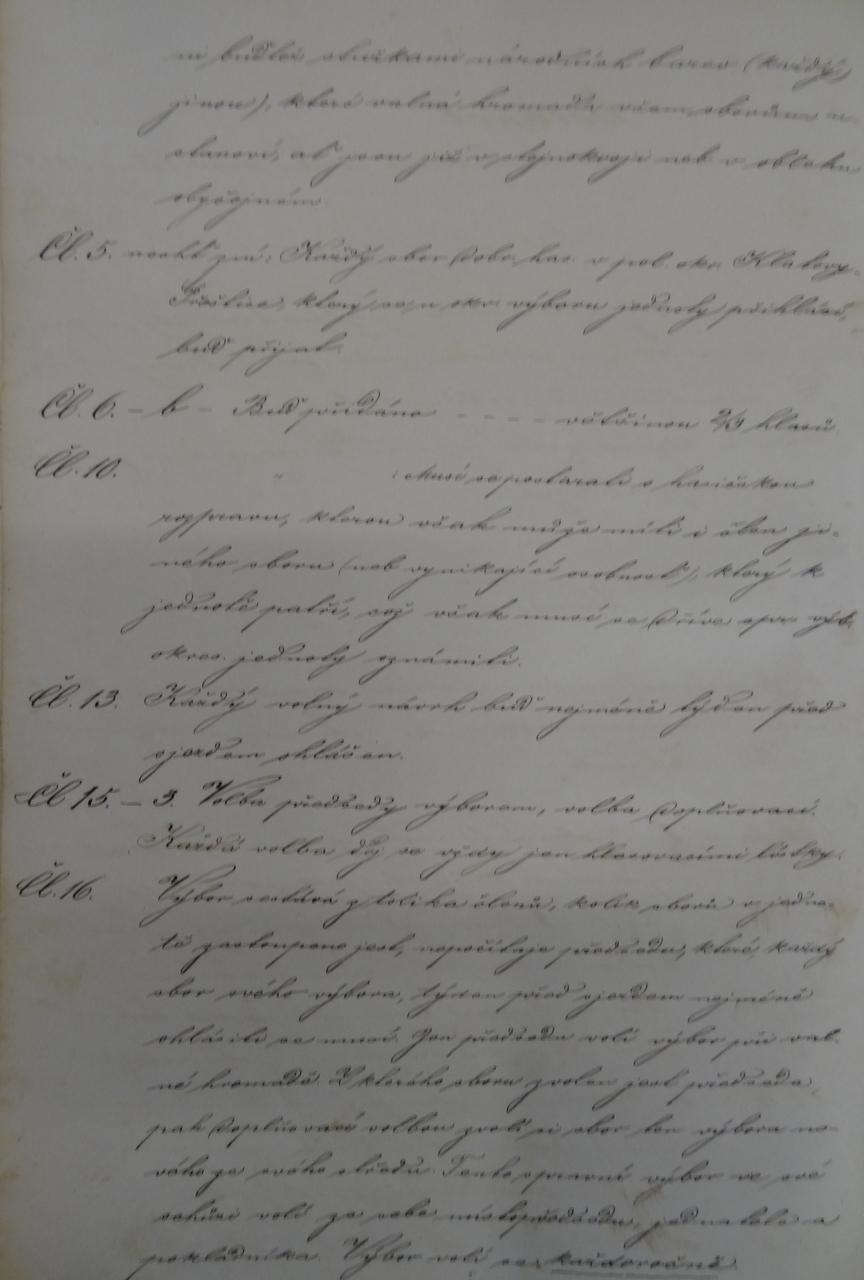 ni buďtež stužkami národních barev (každý
jinou), které valná hromada všem sborům u-
stanoví, ať jsou již v stejnokroji neb v obleku
obyčejném.
Čl. 5. nechť zní: Každý sbor dobr. has. v pol. okr. Klatovy-
který se u okr. výboru jednoty přihlásí,
buď přijat.
Čl. 6. – b – Buď přidáno – – – – většinou 2/3 hlasů.
Čl. 10. " : Musí se postarati o hasičskou
rozpravu, kterou však může míti i člen ji-
ného sboru (neb vynikající osobnost), který k
jednotě patří, což však musí se dříve spr. výb.
okres. jednoty oznámiti.
Čl. 13. Každý volný návrh buď nejméně týden před
sjezdem ohlášen.
Čl. 15. – 3. Volba předsedy výborem, volba doplňovací.
Každá volba děj se vždy jen hlasovacími lístky.
Čl. 16. Výbor sestává z tolika členů, kolik sborů v jedno-
tě zastoupeno jest, nepočítaje předsedu, které každý
sbor svého výbora, týden před sjezdem nejméně
ohlásiti se musí. Jen předsedu volí výbor při val-
né hromadě. Z kterého sboru zvolen jest předseda,
pak doplňovací volbou zvolí si sbor ten výbora no-
vého ze svého středu. Tento správní výbor ve své
schůzi volí ze sebe místopředsedu, jednatele a
pokladníka. Výbor volí se každoročně